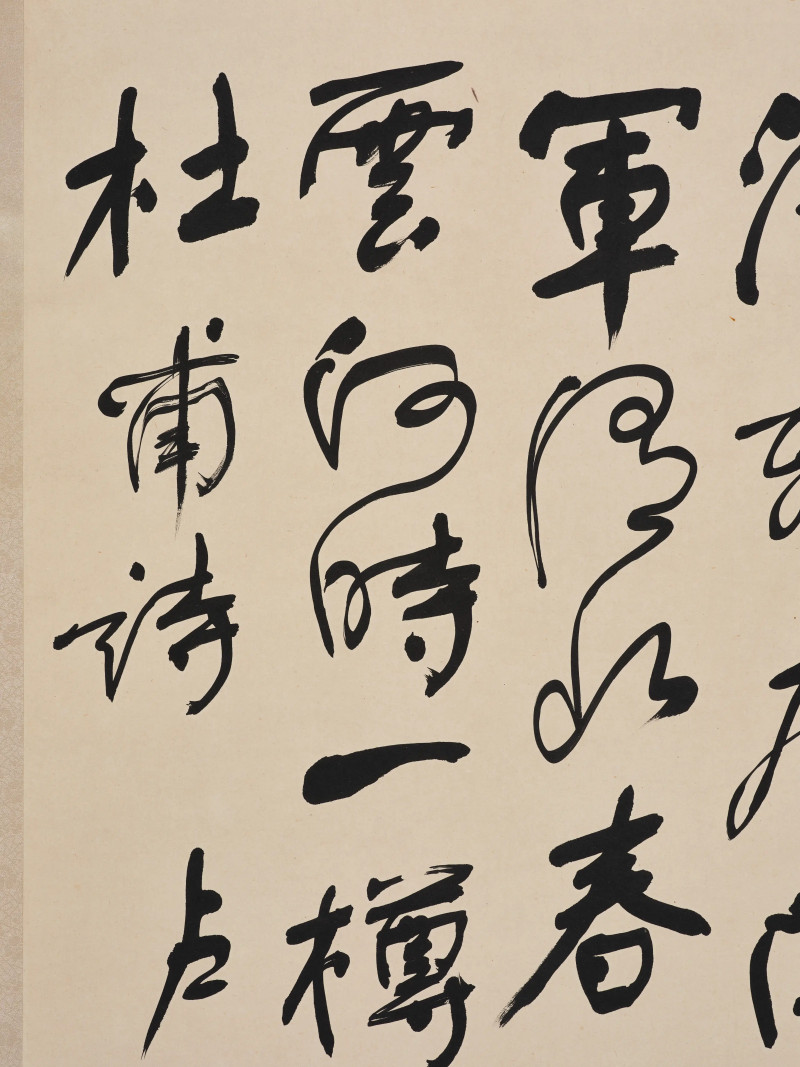 軍渭北春
雲何時一樽
杜甫詩